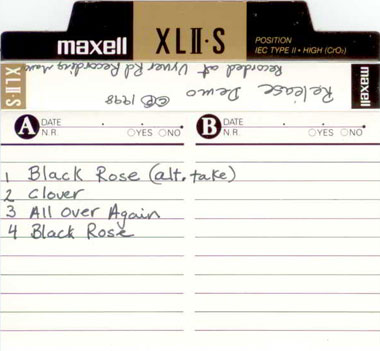 maxell XLII·S
POSITION
IEC TYPE II • HIGH (CrO₂)
XLII·S
Release Demo ©℗ 1998
Recorded at Vyner Rd Recording
maxell
A DATE . .
N.R. ○YES ○NO
B DATE . .
N.R. ○YES ○NO
1 Black Rose (alt. take)
2 Clover
3 All Over Again
4 Black Rose